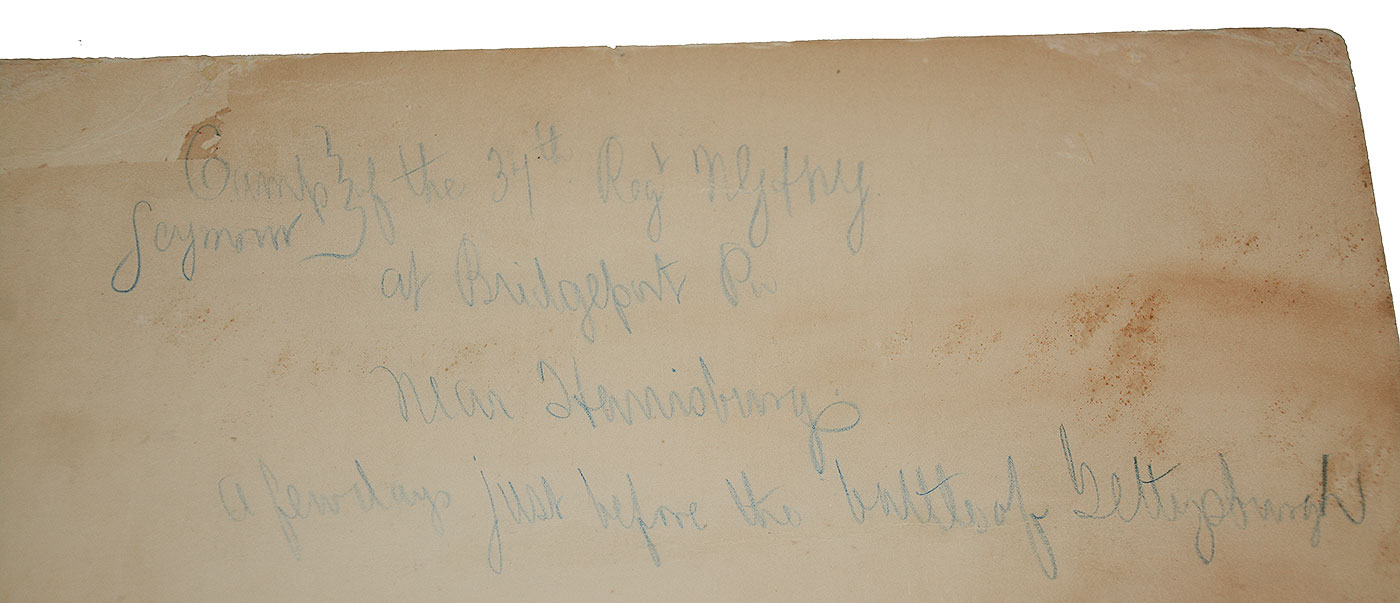 Camp } of the 37th Reg't NG of NY.
Seymour }
at Bridgeport Pa
Near Harrisburg.
a few days just before the battle of Gettysburgh